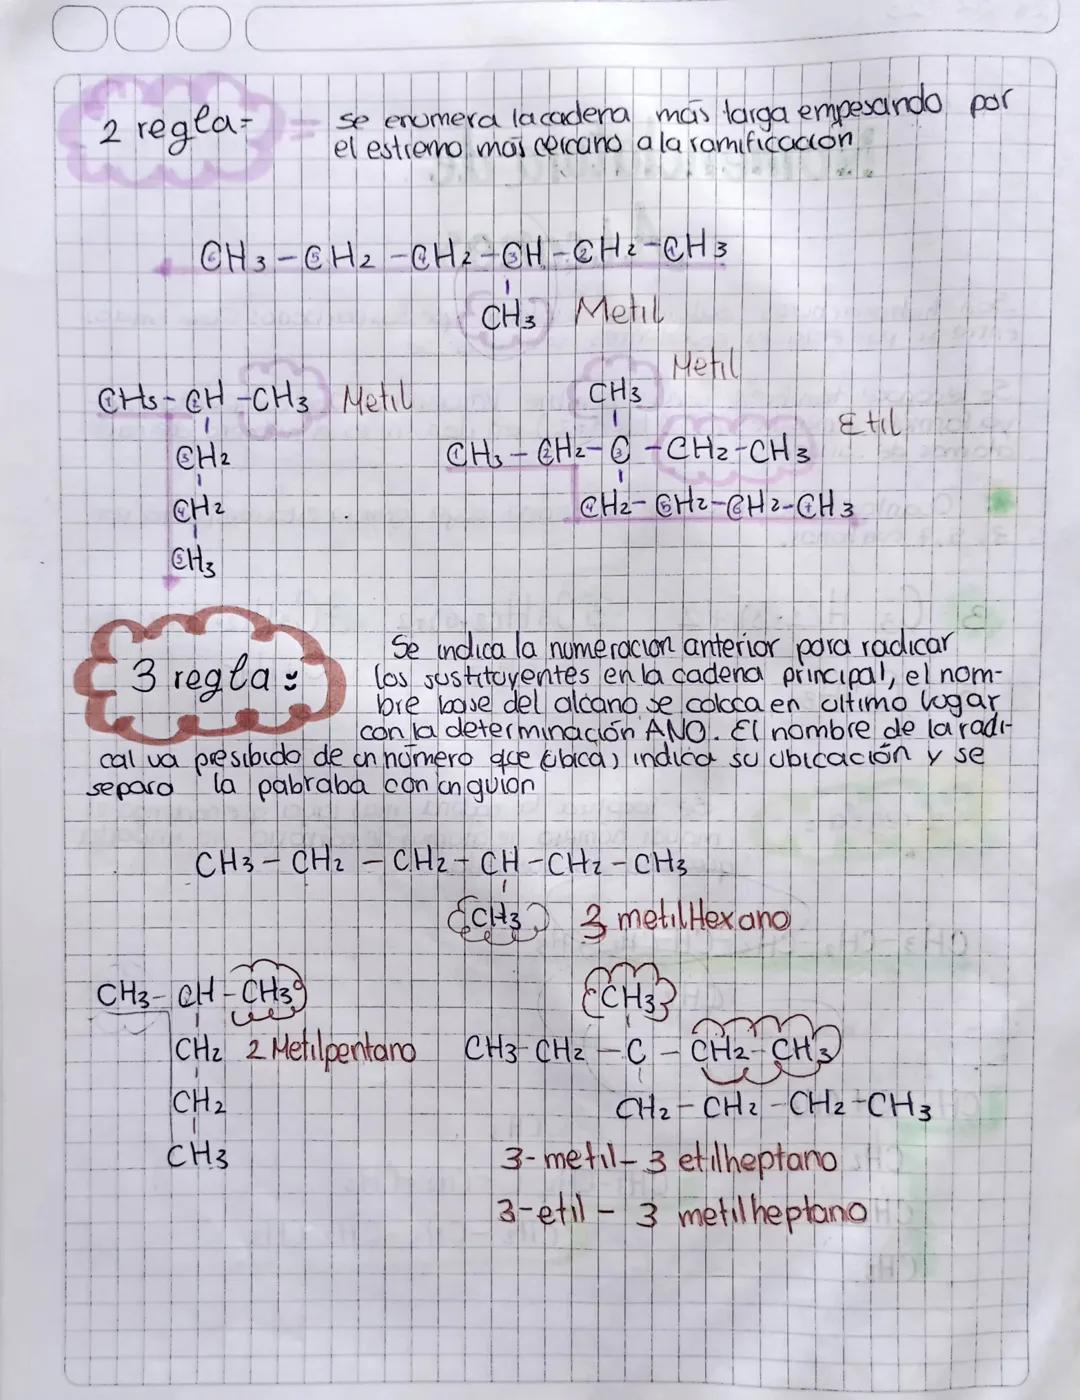 2 regla=
se enumera la cadena más larga empesando por
el estremo más cercano a la ramificación
CH3-CH2-CH2-CH-CH2-CH3
CH3 Metil
CH3-CH-CH3 Metil
CH2
CH2
CH3
Metil
CH3
Etil
CH3-CH2-C-CH2-CH3
CH2-CH2-CH2-CH3
3 regla:
Se indica la numeracion anterior para radicar
los sustituyentes en la cadena principal, el nom-
bre base del alcano se coloca en ultimo lugar
con la determinación ANO. El nombre de la radi-
cal va presibido de un número que (ubica) indica su ubicación y se
separa la pabraba con un guion
CH3-CH2-CH2-CH-CH2-CH3
CH3 3 metilHexano
CH3-CH-CH3
CH2 2 Metilpentano
CH2
CH3
CH3
CH3-CH2-C-CH2-CH3
CH2-CH2-CH2-CH3
3-metil-3 etilheptano
3-etil-3 metilheptano